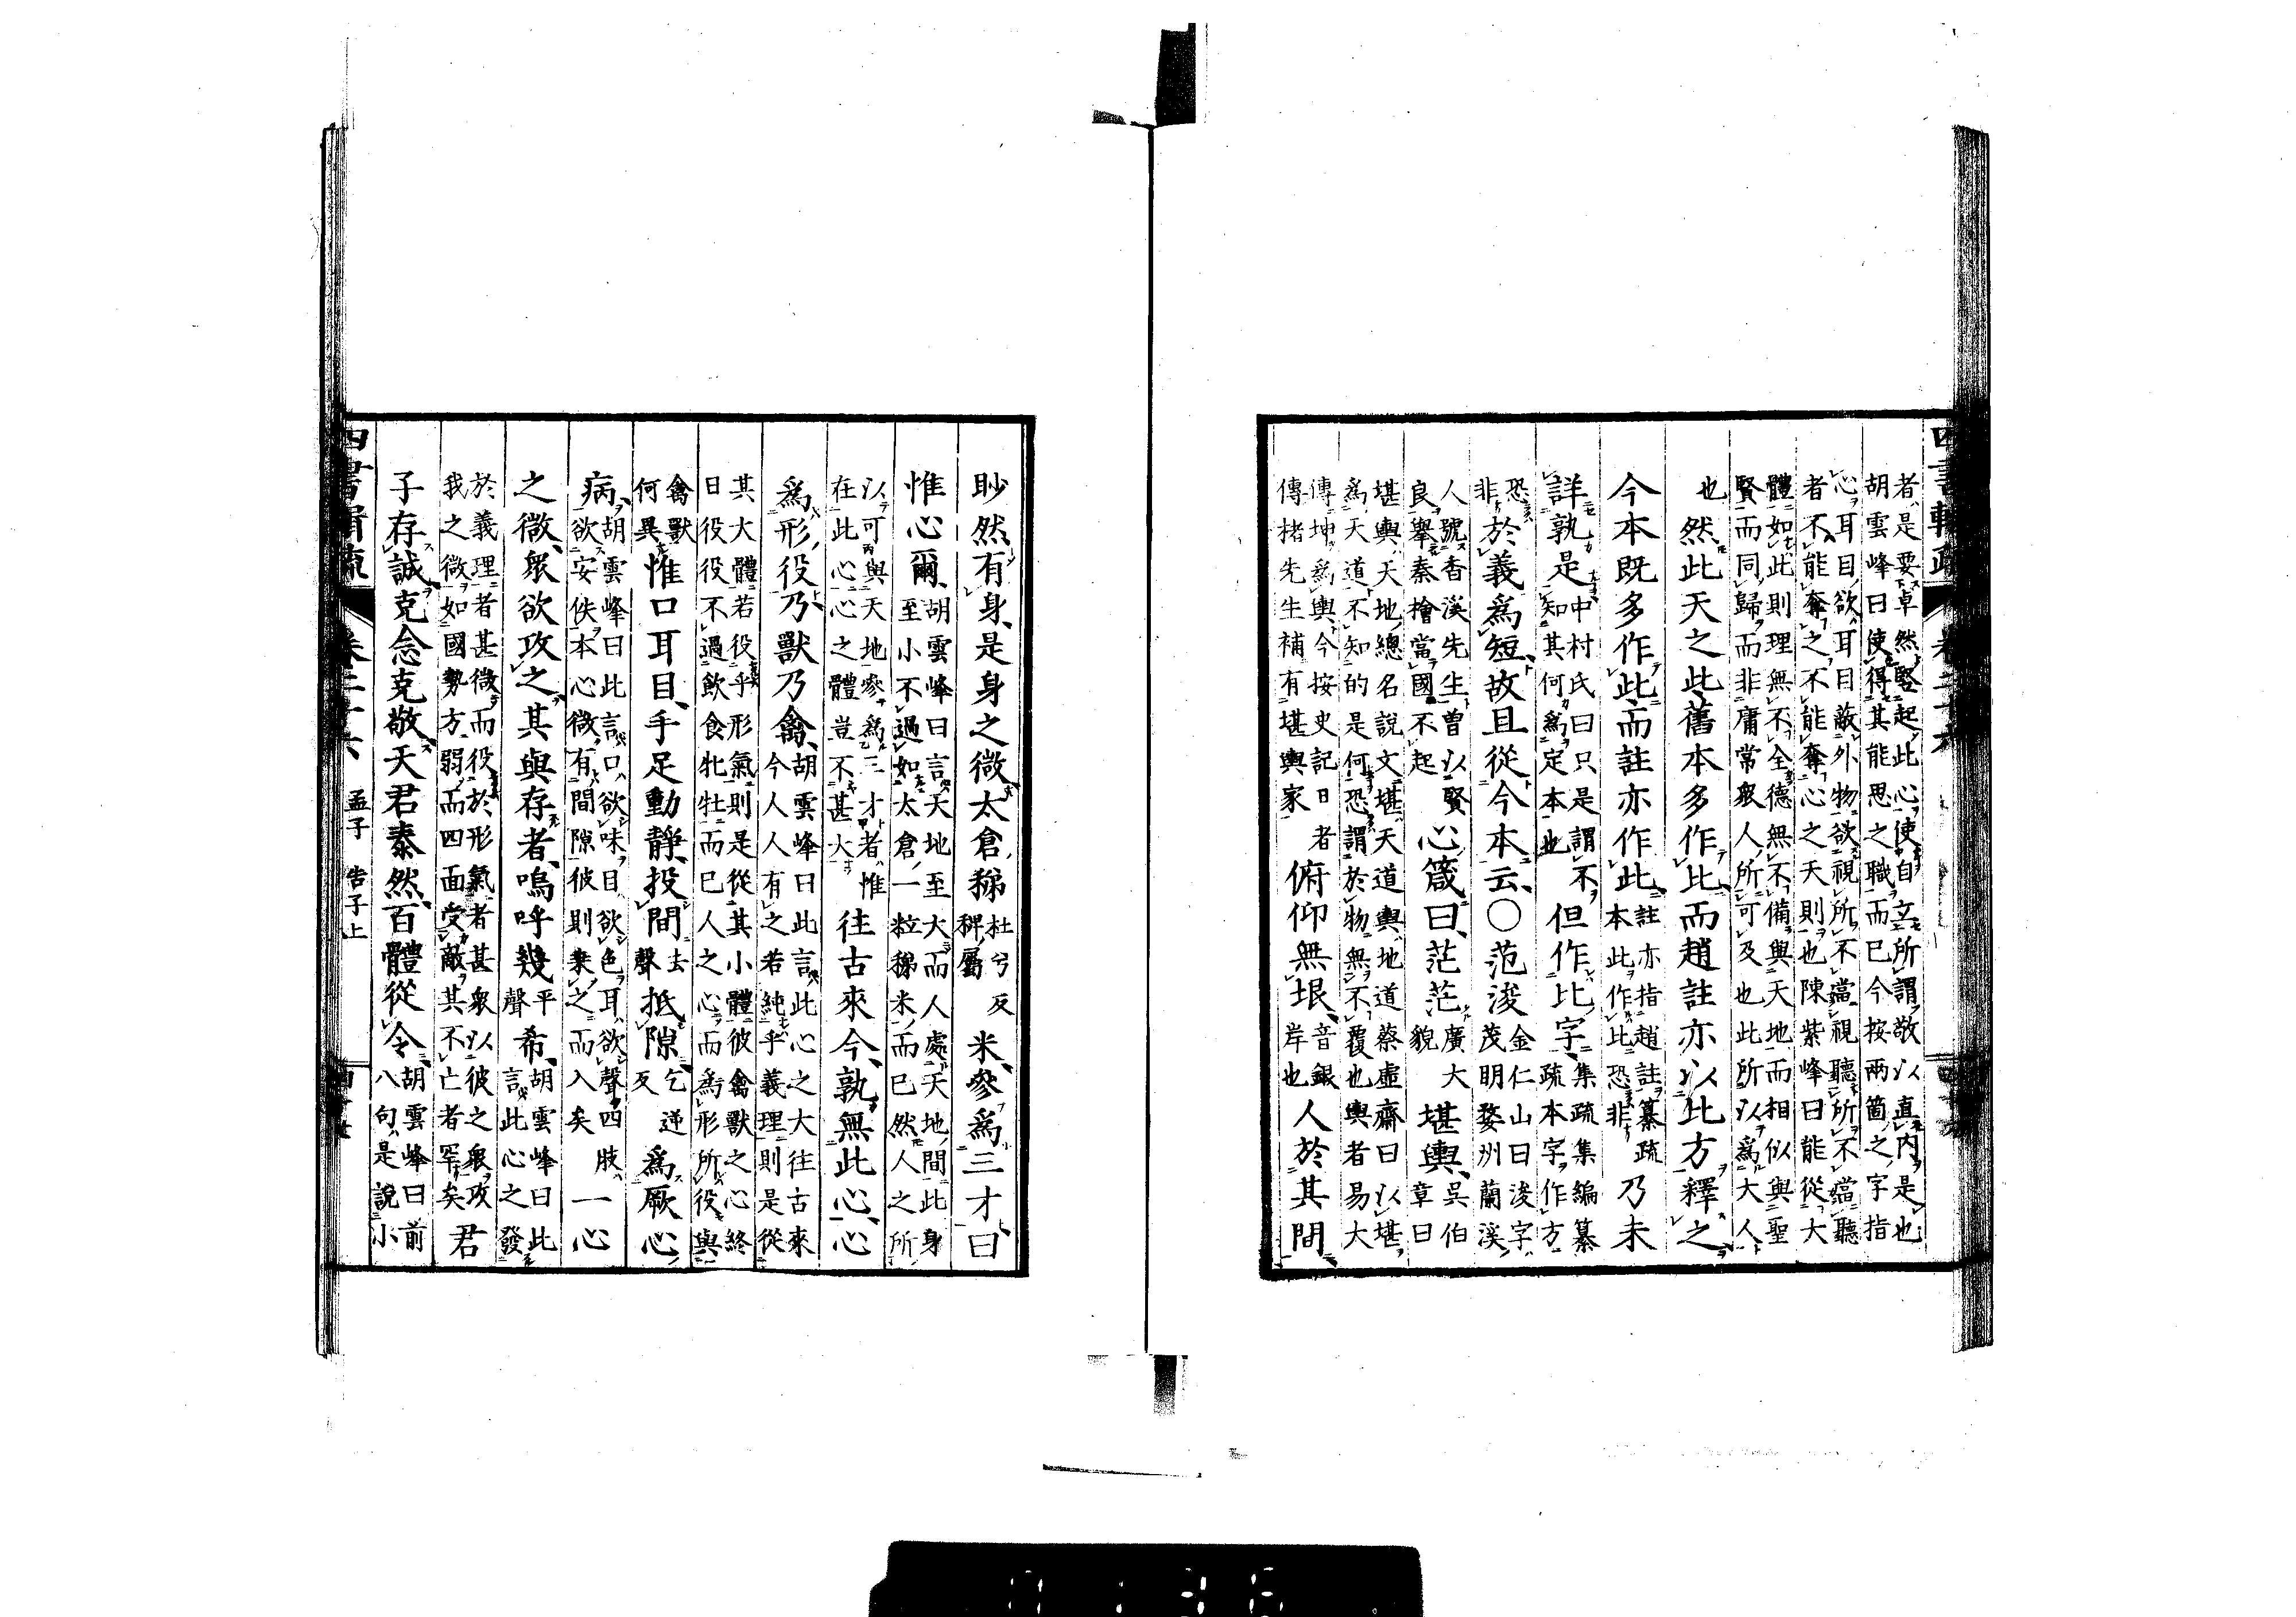 四書輯疏
者是要卓然豎起此心使自立所謂敬以直內是也
胡雲峰曰使得其能思之職而已今按兩箇之字指
心耳目欲耳目蔽外物欲視所不當視聽所不當聽
者不能奪之不能奪心之天則也陳紫峰曰能從大
體如此則理無不全德無不備與天地而相似與聖
賢而同歸而非庸常衆人所可及也此所以爲大人
也然此天之此舊本多作比而趙註亦以比方釋之
今本既多作此而註亦作此註亦指趙註纂疏本此作比恐非乃未
詳孰是中村氏曰只是謂不知其何爲定本也但作比字集疏集編纂疏本字作方
恐非於義爲短故且從今本云○范浚金仁山曰浚字茂明婺州蘭溪
人號香溪先生曾以賢良舉秦檜當國不起心箴曰茫茫廣大貌堪輿吳伯章曰
堪輿天地總名說文堪天道輿地道蔡虛齋曰以堪
爲天道不知的是何恐謂於物無不覆也輿者易大
傳坤爲輿今按史記日者傳褚先生補有堪輿家俯仰無垠音銀岸也人於其間
眇然有身是身之微太倉稊杜兮反稗屬米參爲三才曰
惟心爾胡雲峰曰言天地至大而人處天地間此身至小不過如太倉一粒稊米而已然人之所
以可與天地參爲三才者惟在此心心之體豈不甚大往古來今孰無此心心
爲形役乃獸乃禽胡雲峰曰此言此心之大往古來今人人有之若純乎義理則是從
其大體若役乎形氣則是從其小體彼禽獸之心終
日役役不過飲食牝牡而已人之心而爲形所役與
禽獸何異惟口耳目手足動靜投間去聲抵隙乞逆反爲厥心
病胡雲峰曰此言口欲味目欲色耳欲聲四肢欲安佚本心微有間隙彼則乘之而入矣一心
之微衆欲攻之其與存者嗚呼幾平聲希胡雲峰曰此言此心之發
於義理者甚微而役於形氣者甚衆以彼之衆攻
我之微如國勢方弱而四面受敵其不亡者罕矣君
子存誠克念克敬天君泰然百體從令胡雲峰曰前八句是說小
四書輯疏 卷二十六 孟子 告子上